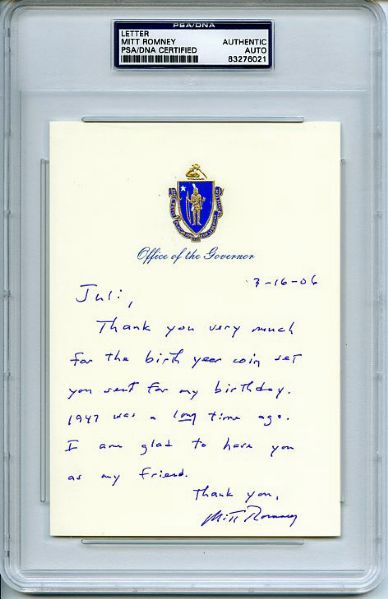 PSA/DNA
LETTER
MITT ROMNEY
PSA/DNA CERTIFIED
AUTHENTIC
AUTO
83276021
Office of the Governor
3-16-06
Juli,
Thank you very much
for the birth year coin set
you sent for my birthday.
1947 was a long time ago.
I am glad to have you
as my friend.
Thank you,
Mitt Romney